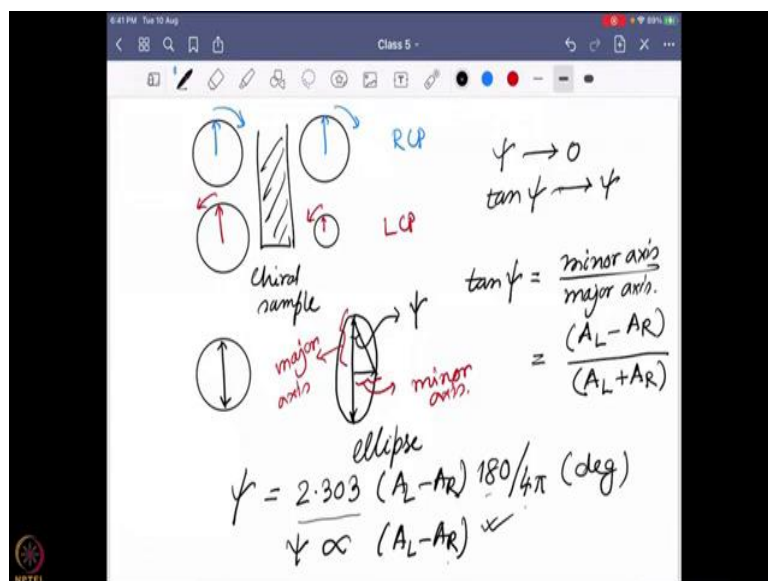 6:41 PM Tue 10 Aug
89%
Class 5
RCP
LCP
Chiral
sample
ψ → 0
tan ψ → ψ
tan ψ = minor axis / major axis.
= (A_L - A_R) / (A_L + A_R)
major
axis
ψ
minor
axis.
ellipse
ψ = 2.303 (A_L - A_R) 180/4π (deg)
ψ ∝ (A_L - A_R)
NPTEL